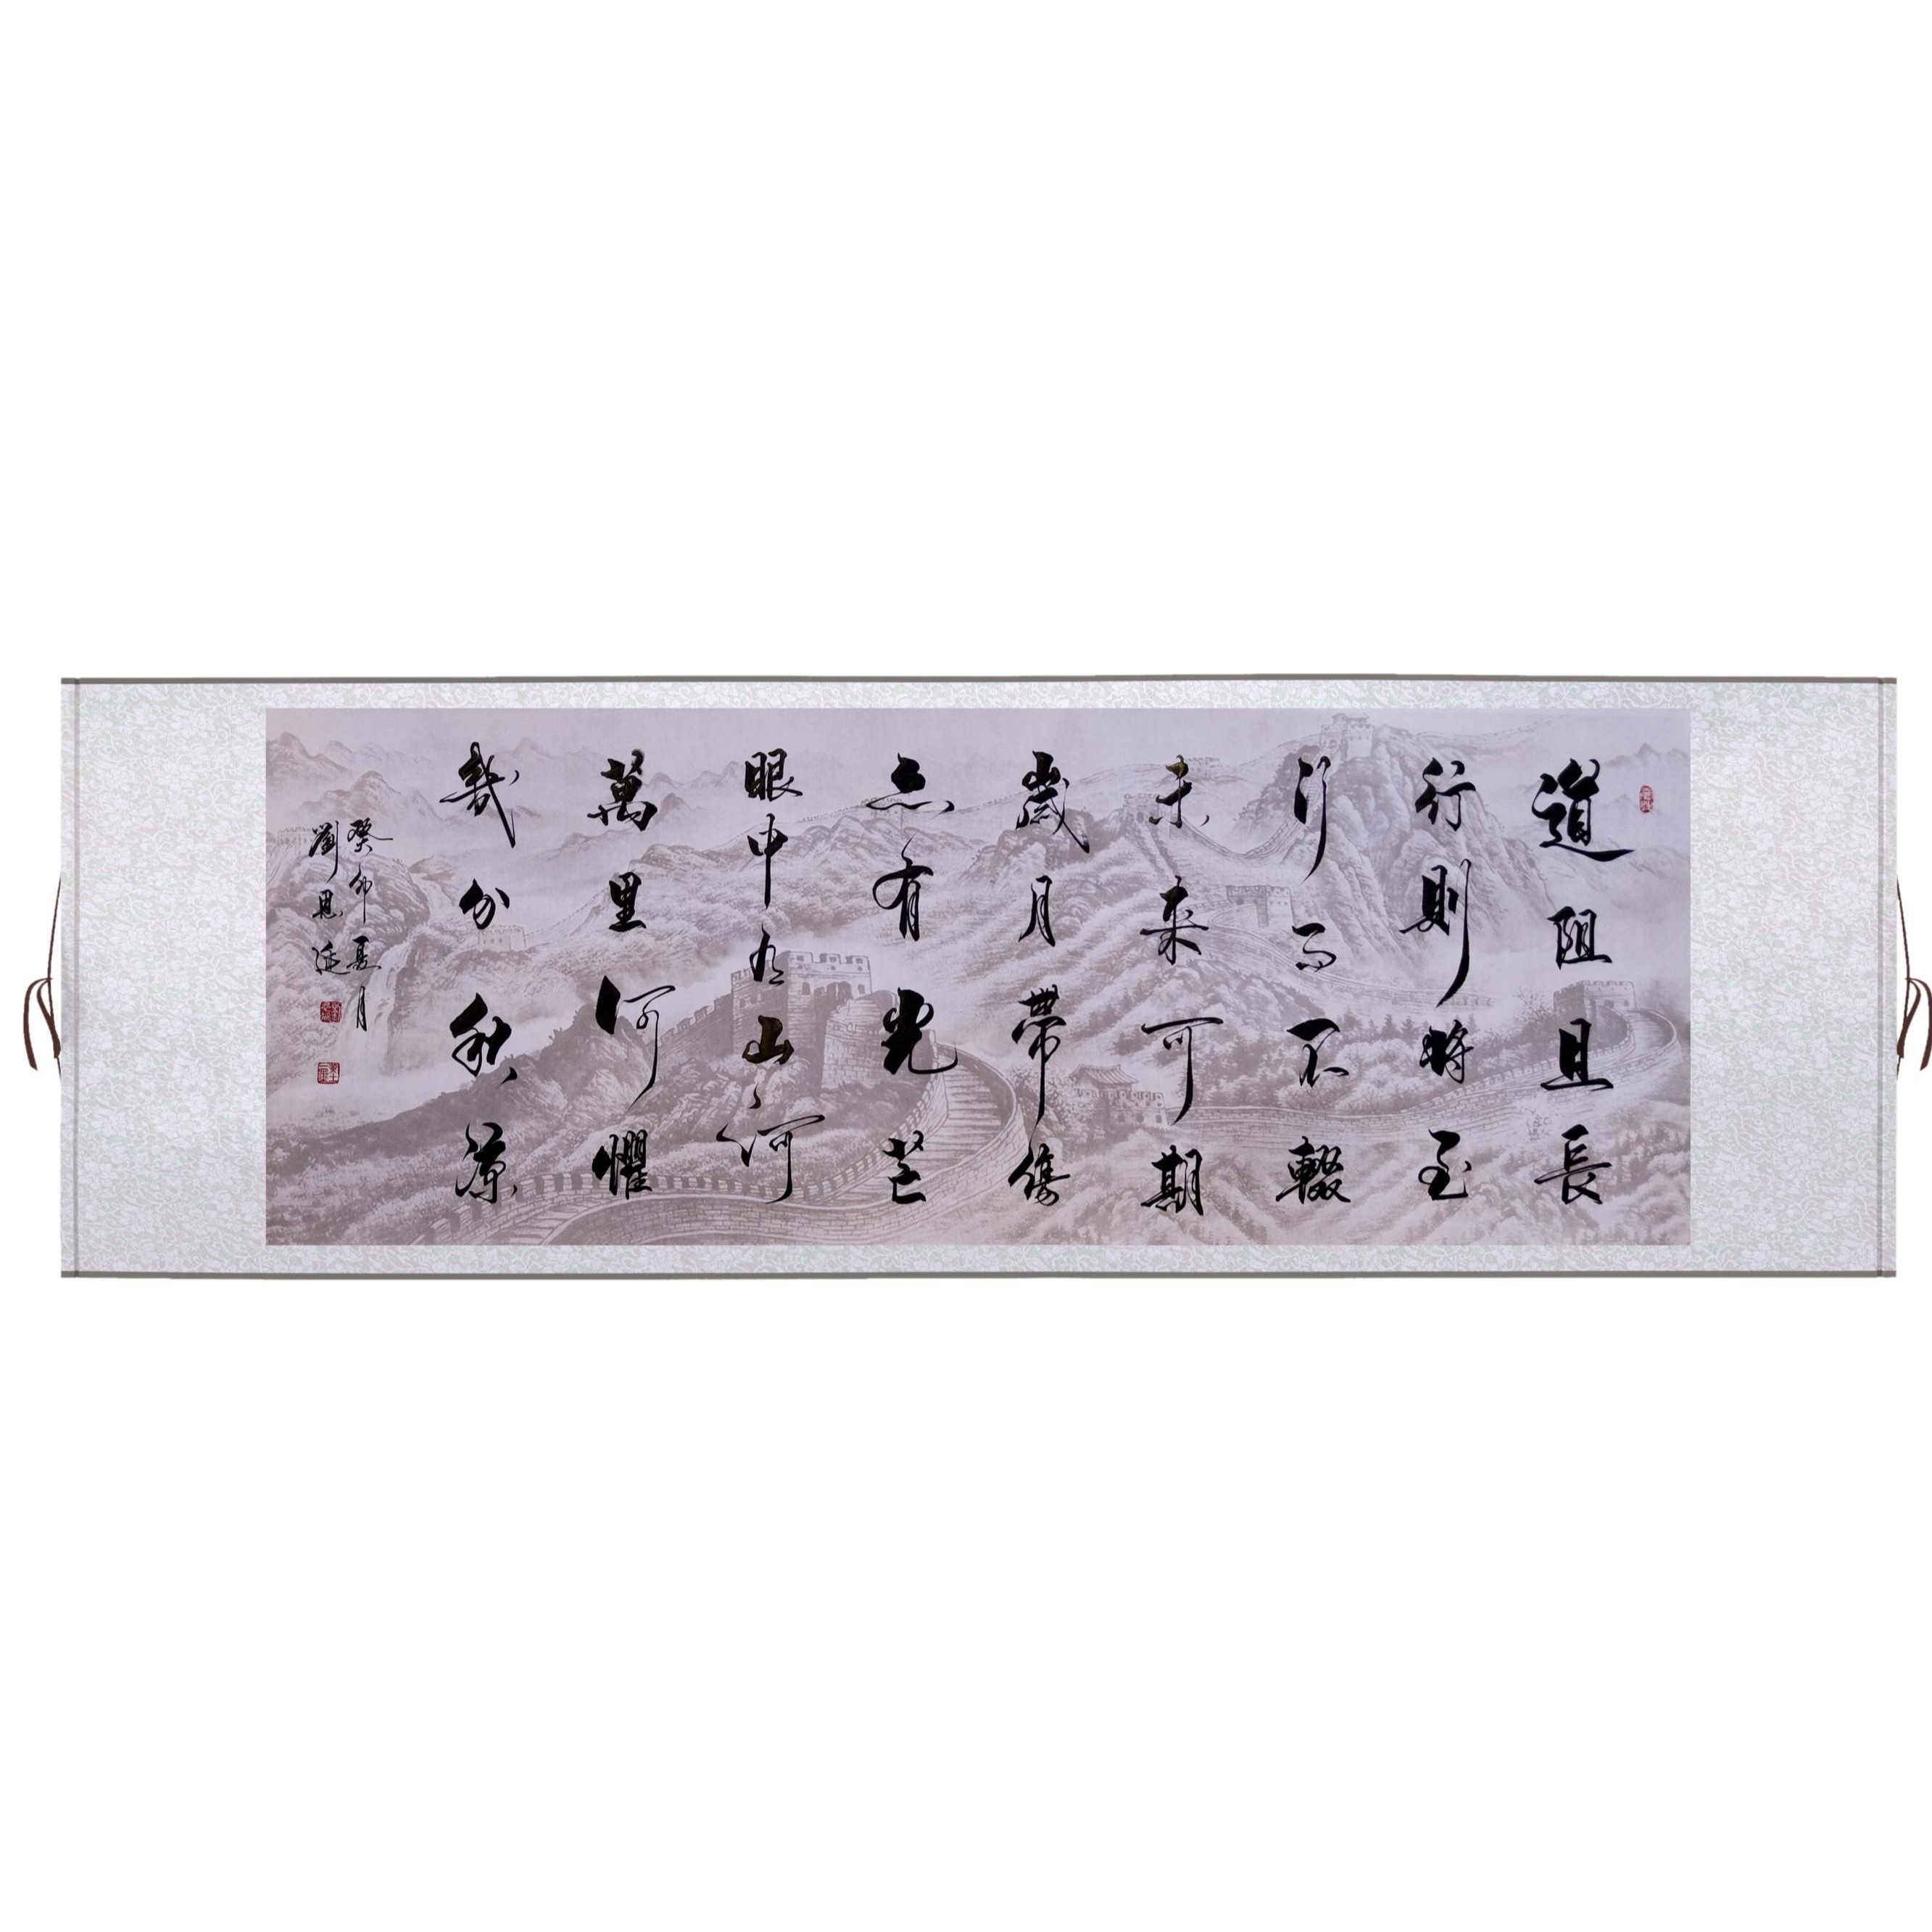 道阻且長
行則将至
行而不輟
未来可期
歲月帶傷
亦有光芒
眼中有山河
萬里何懼
幾分秋涼
癸卯夏月
劉恩延